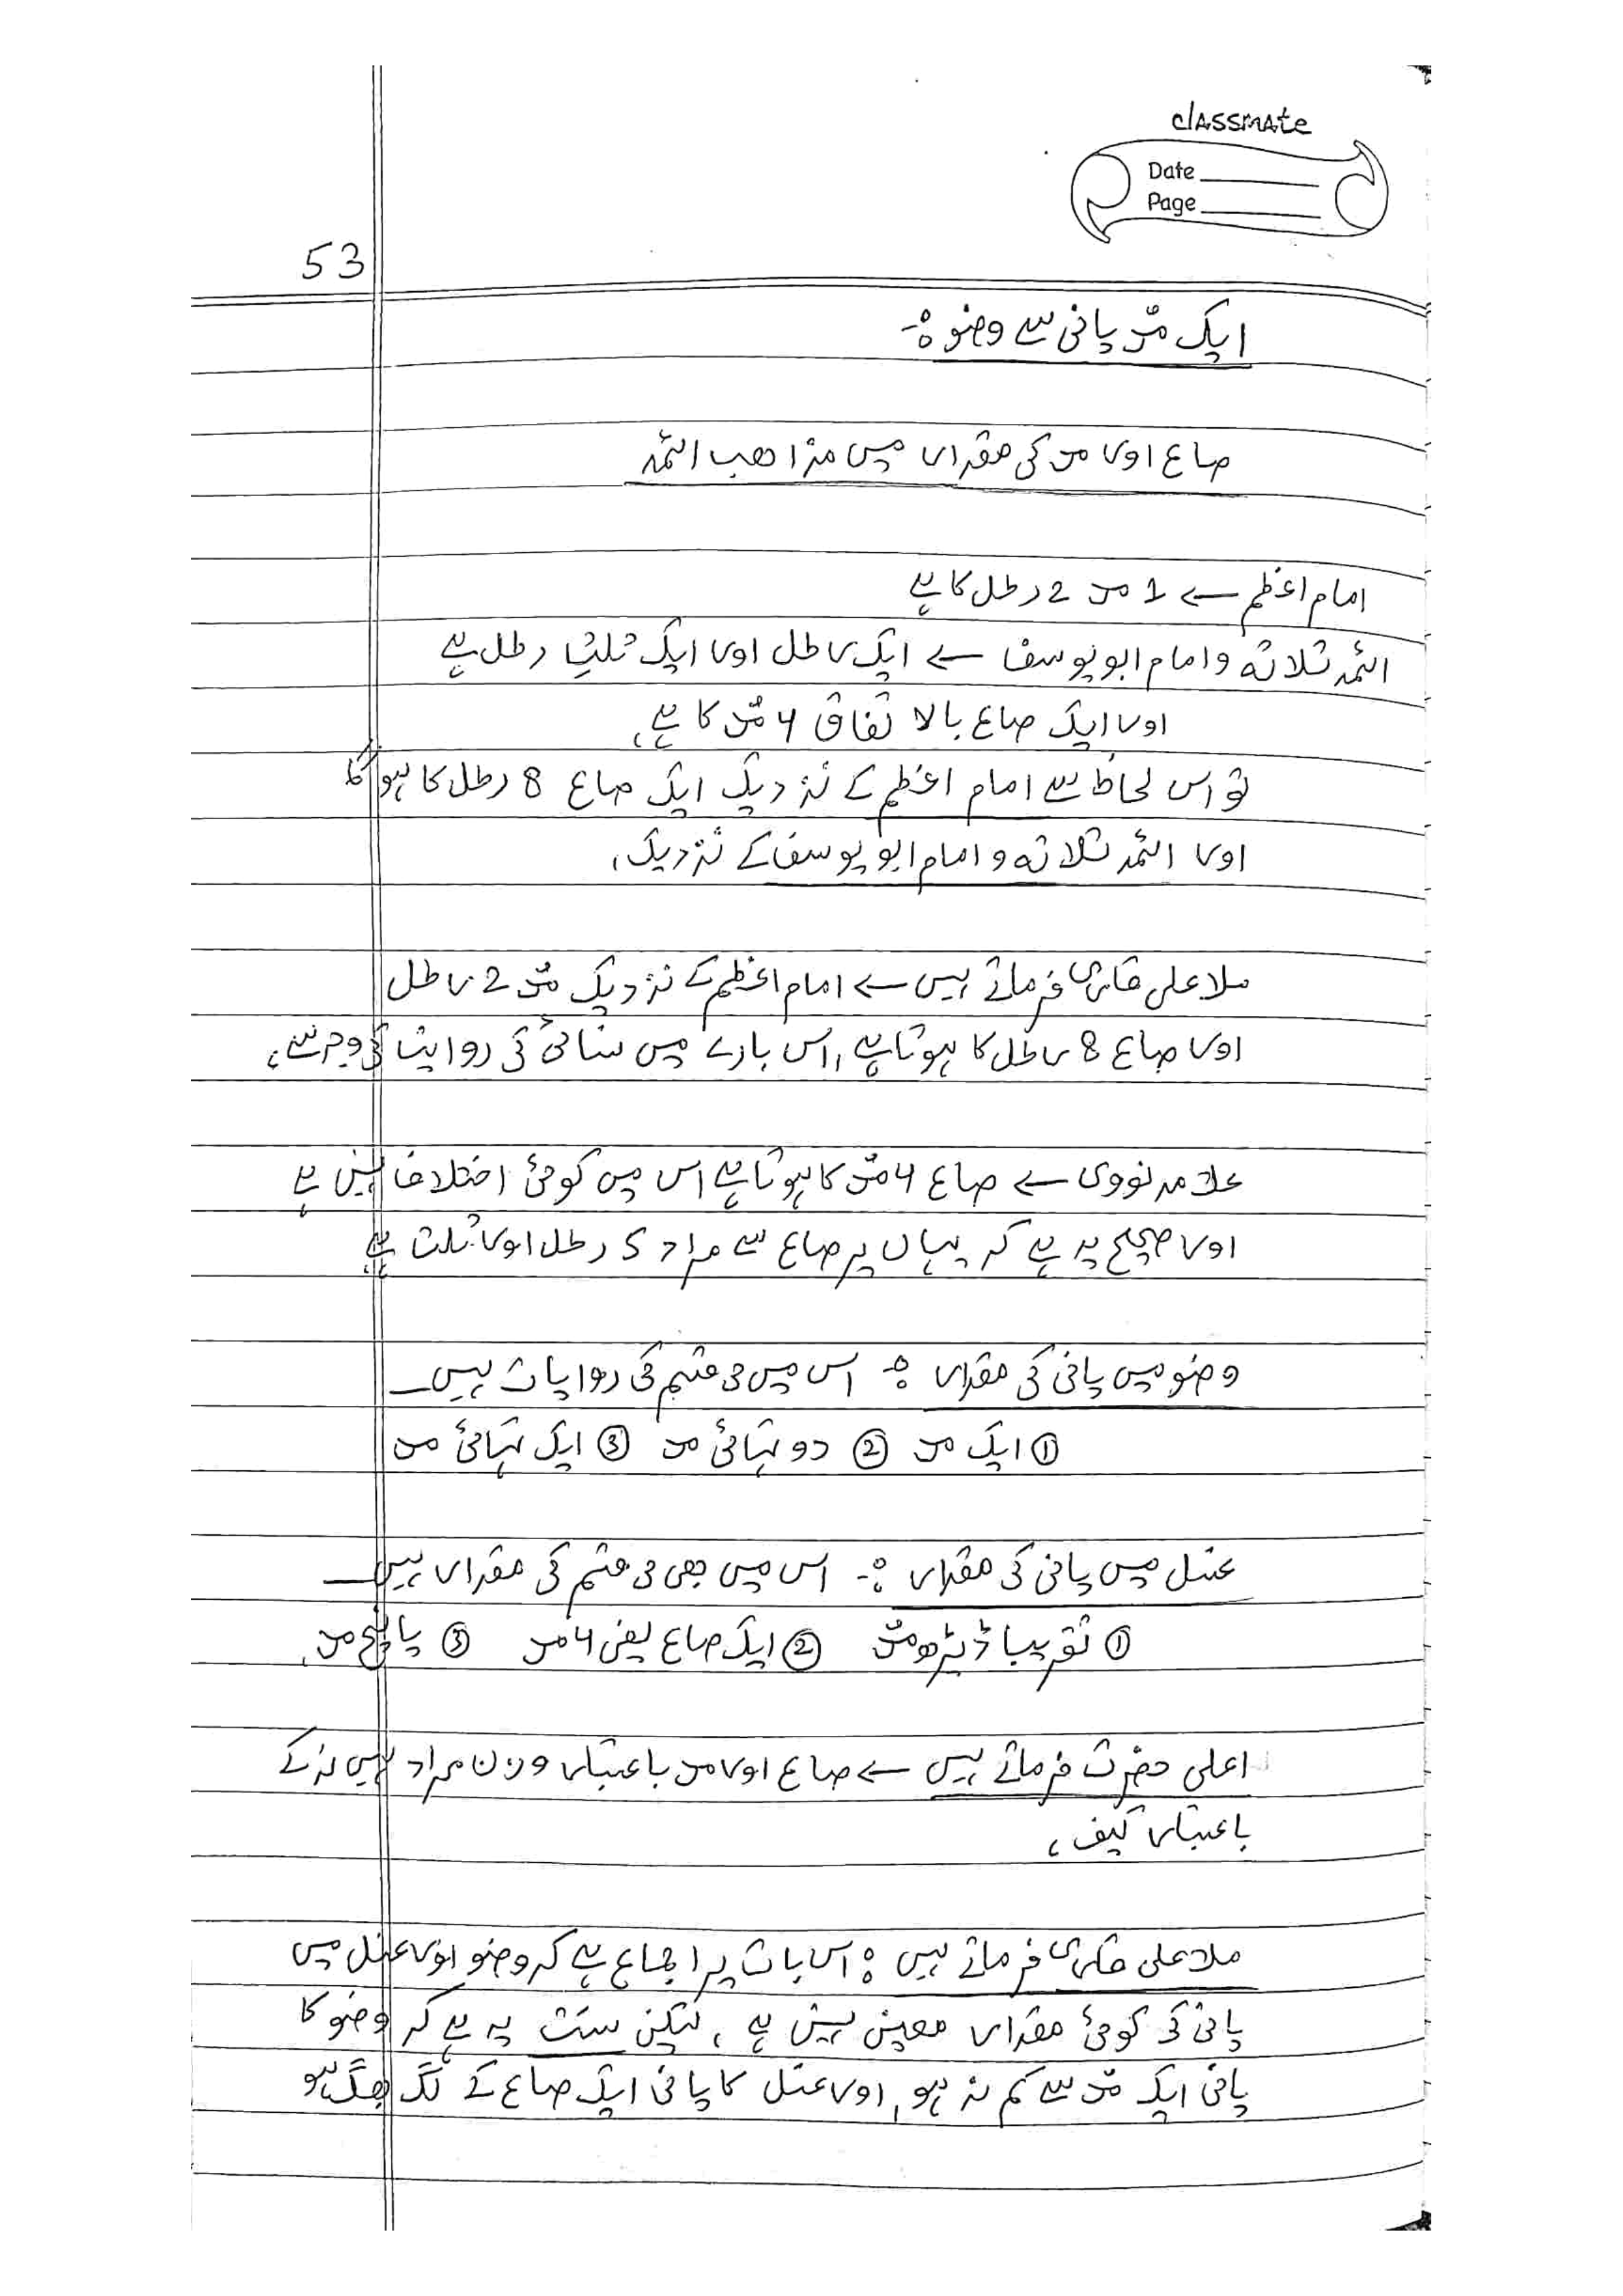 classmate
Date
Page
53
ایک مُد پانی سے وضو :-
صاع اور مد کی مقدار میں مذاھب ائمہ
امام اعظم ← 1 مد 2 رطل کا ہے
ائمہ ثلاثہ و امام ابو یوسف ← ایک رطل اور ایک ثلث رطل ہے
اور ایک صاع بالاتفاق 4 مُد کا ہے،
تو اس لحاظ سے امام اعظم کے نزدیک ایک صاع 8 رطل کا ہوگا
اور ائمہ ثلاثہ و امام ابو یوسف کے نزدیک،
ملا علی قاری فرماتے ہیں ← امام اعظم کے نزدیک مُد 2 رطل
اور صاع 8 رطل کا ہوتا ہے، اس بارے میں نسائی کی روایت کی وجہ سے،
علامہ نووی ← صاع 4 مُد کا ہوتا ہے اس میں کوئی اختلاف نہیں ہے
اور صحیح یہ ہے کہ یہاں پر صاع سے مراد 5 رطل اور ثلث ہے
وضو میں پانی کی مقدار :- اس میں 3 قسم کی روایات ہیں ـ
① ایک مد ② دو تہائی مد ③ ایک تہائی مد
غسل میں پانی کی مقدار :- اس میں بھی 3 قسم کی مقدار ہیں ـ
① تقریبا ڈیڑھ مُد ② ایک صاع یعنی 4 مد ③ پانچ مد،
اعلی حضرت فرماتے ہیں ← صاع اور مد باعتبار وزن مراد ہیں نہ کے
باعتبار کیف،
ملا علی قاری فرماتے ہیں : اس بات پر اجماع ہے کہ وضو اور غسل میں
پانی کی کوئی مقدار معین نہیں ہے، لیکن سنت یہ ہے کہ وضو کا
پانی ایک مُد سے کم نہ ہو، اور غسل کا پانی ایک صاع کے لگ بھگ ہو